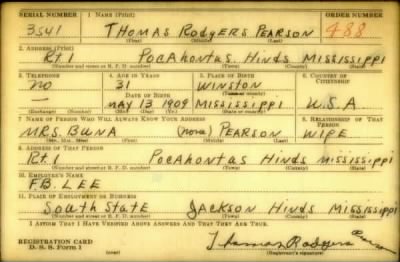 SERIAL NUMBER 1. NAME (Print) ORDER NUMBER
3541 THOMAS RODGERS PEARSON 488
(First) (Middle) (Last)
2. ADDRESS (Print)
Rt 1 POCAHONTAS HINDS MISSISSIPPI
(Number and street or R. F. D. number) (Town) (County) (State)
3. TELEPHONE 4. AGE IN YEARS 5. PLACE OF BIRTH 6. COUNTRY OF CITIZENSHIP
NO 31 WINSTON
DATE OF BIRTH (Town or county)
— MAY 13 1909 MISSISSIPPI U.S.A
(Exchange) (Number) (Mo.) (Day) (Yr.) (State or country)
7. NAME OF PERSON WHO WILL ALWAYS KNOW YOUR ADDRESS 8. RELATIONSHIP OF THAT PERSON
MRS. BUNA (none) PEARSON WIFE
(Mr., Mrs., Miss) (First) (Middle) (Last)
9. ADDRESS OF THAT PERSON
Rt 1 POCAHONTAS HINDS MISSISSIPPI
(Number and street or R. F. D. number) (Town) (County) (State)
10. EMPLOYER'S NAME
F.B. LEE
11. PLACE OF EMPLOYMENT OR BUSINESS
SOUTH STATE JACKSON HINDS MISSISSIPPI
(Number and street or R. F. D. number) (Town) (County) (State)
I AFFIRM THAT I HAVE VERIFIED ABOVE ANSWERS AND THAT THEY ARE TRUE.
REGISTRATION CARD
D. S. S. Form 1 (over) Thomas Rodgers Pearson
(Registrant's signature)